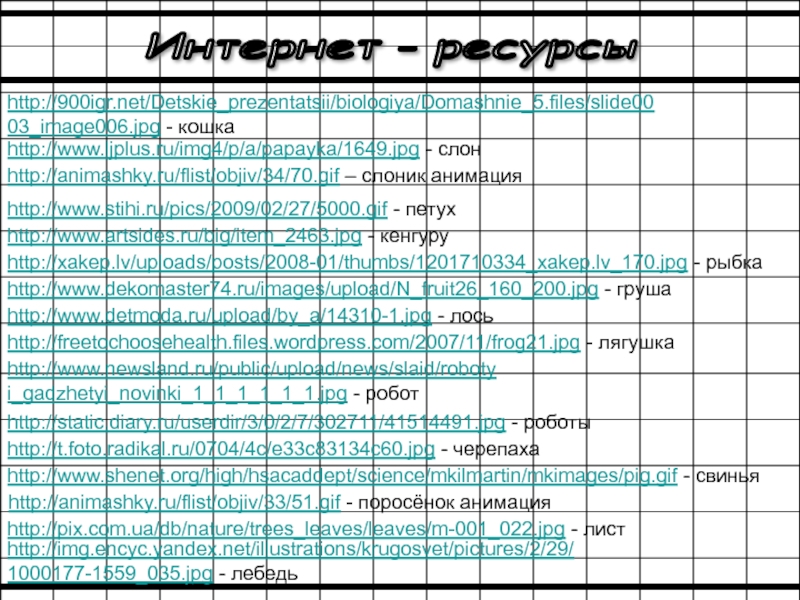 Интернет - ресурсы
http://900igr.net/Detskie_prezentatsii/biologiya/Domashnie_5.files/slide00
03_image006.jpg - кошка
http://www.ljplus.ru/img4/p/a/papayka/1649.jpg - слон
http://animashky.ru/flist/objiv/34/70.gif – слоник анимация
http://www.stihi.ru/pics/2009/02/27/5000.gif - петух
http://www.artsides.ru/big/item_2463.jpg - кенгуру
http://xakep.lv/uploads/posts/2008-01/thumbs/1201710334_xakep.lv_170.jpg - рыбка
http://www.dekomaster74.ru/images/upload/N_fruit26_160_200.jpg - груша
http://www.detmoda.ru/upload/by_a/14310-1.jpg - лось
http://freetochoosehealth.files.wordpress.com/2007/11/frog21.jpg - лягушка
http://www.newsland.ru/public/upload/news/slaid/roboty
i_gadzhetyi_novinki_1_1_1_1_1_1.jpg - робот
http://static.diary.ru/userdir/3/0/2/7/302711/41514491.jpg - роботы
http://t.foto.radikal.ru/0704/4c/e33c83134c60.jpg - черепаха
http://www.shenet.org/high/hsacaddept/science/mkilmartin/mkimages/pig.gif - свинья
http://animashky.ru/flist/objiv/33/51.gif - поросёнок анимация
http://pix.com.ua/db/nature/trees_leaves/leaves/m-001_022.jpg - лист
http://img.encyc.yandex.net/illustrations/krugosvet/pictures/2/29/
1000177-1559_035.jpg - лебедь